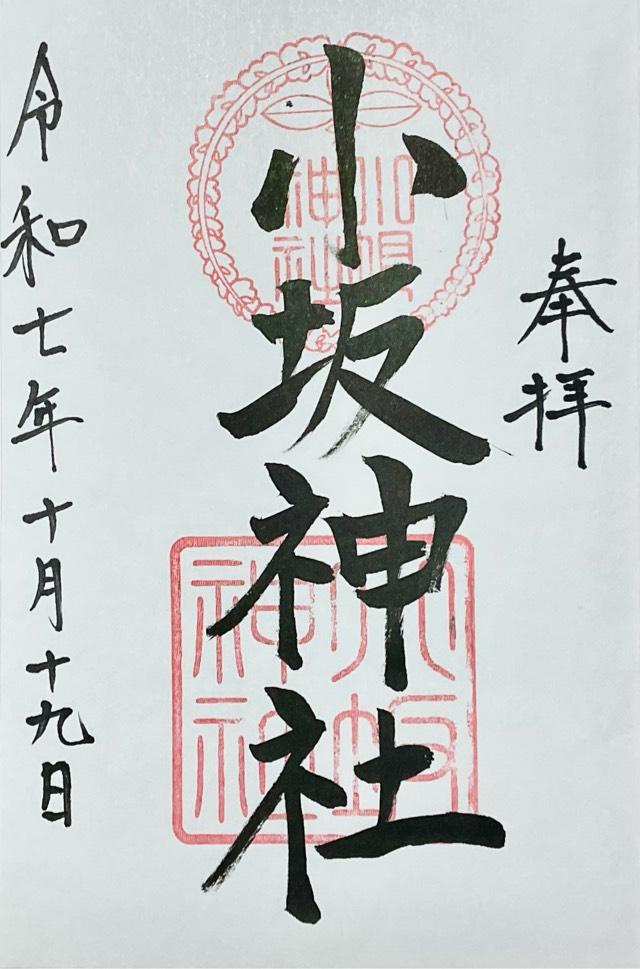 奉拝
小坂神社
令和七年十月十九日
小坂神社